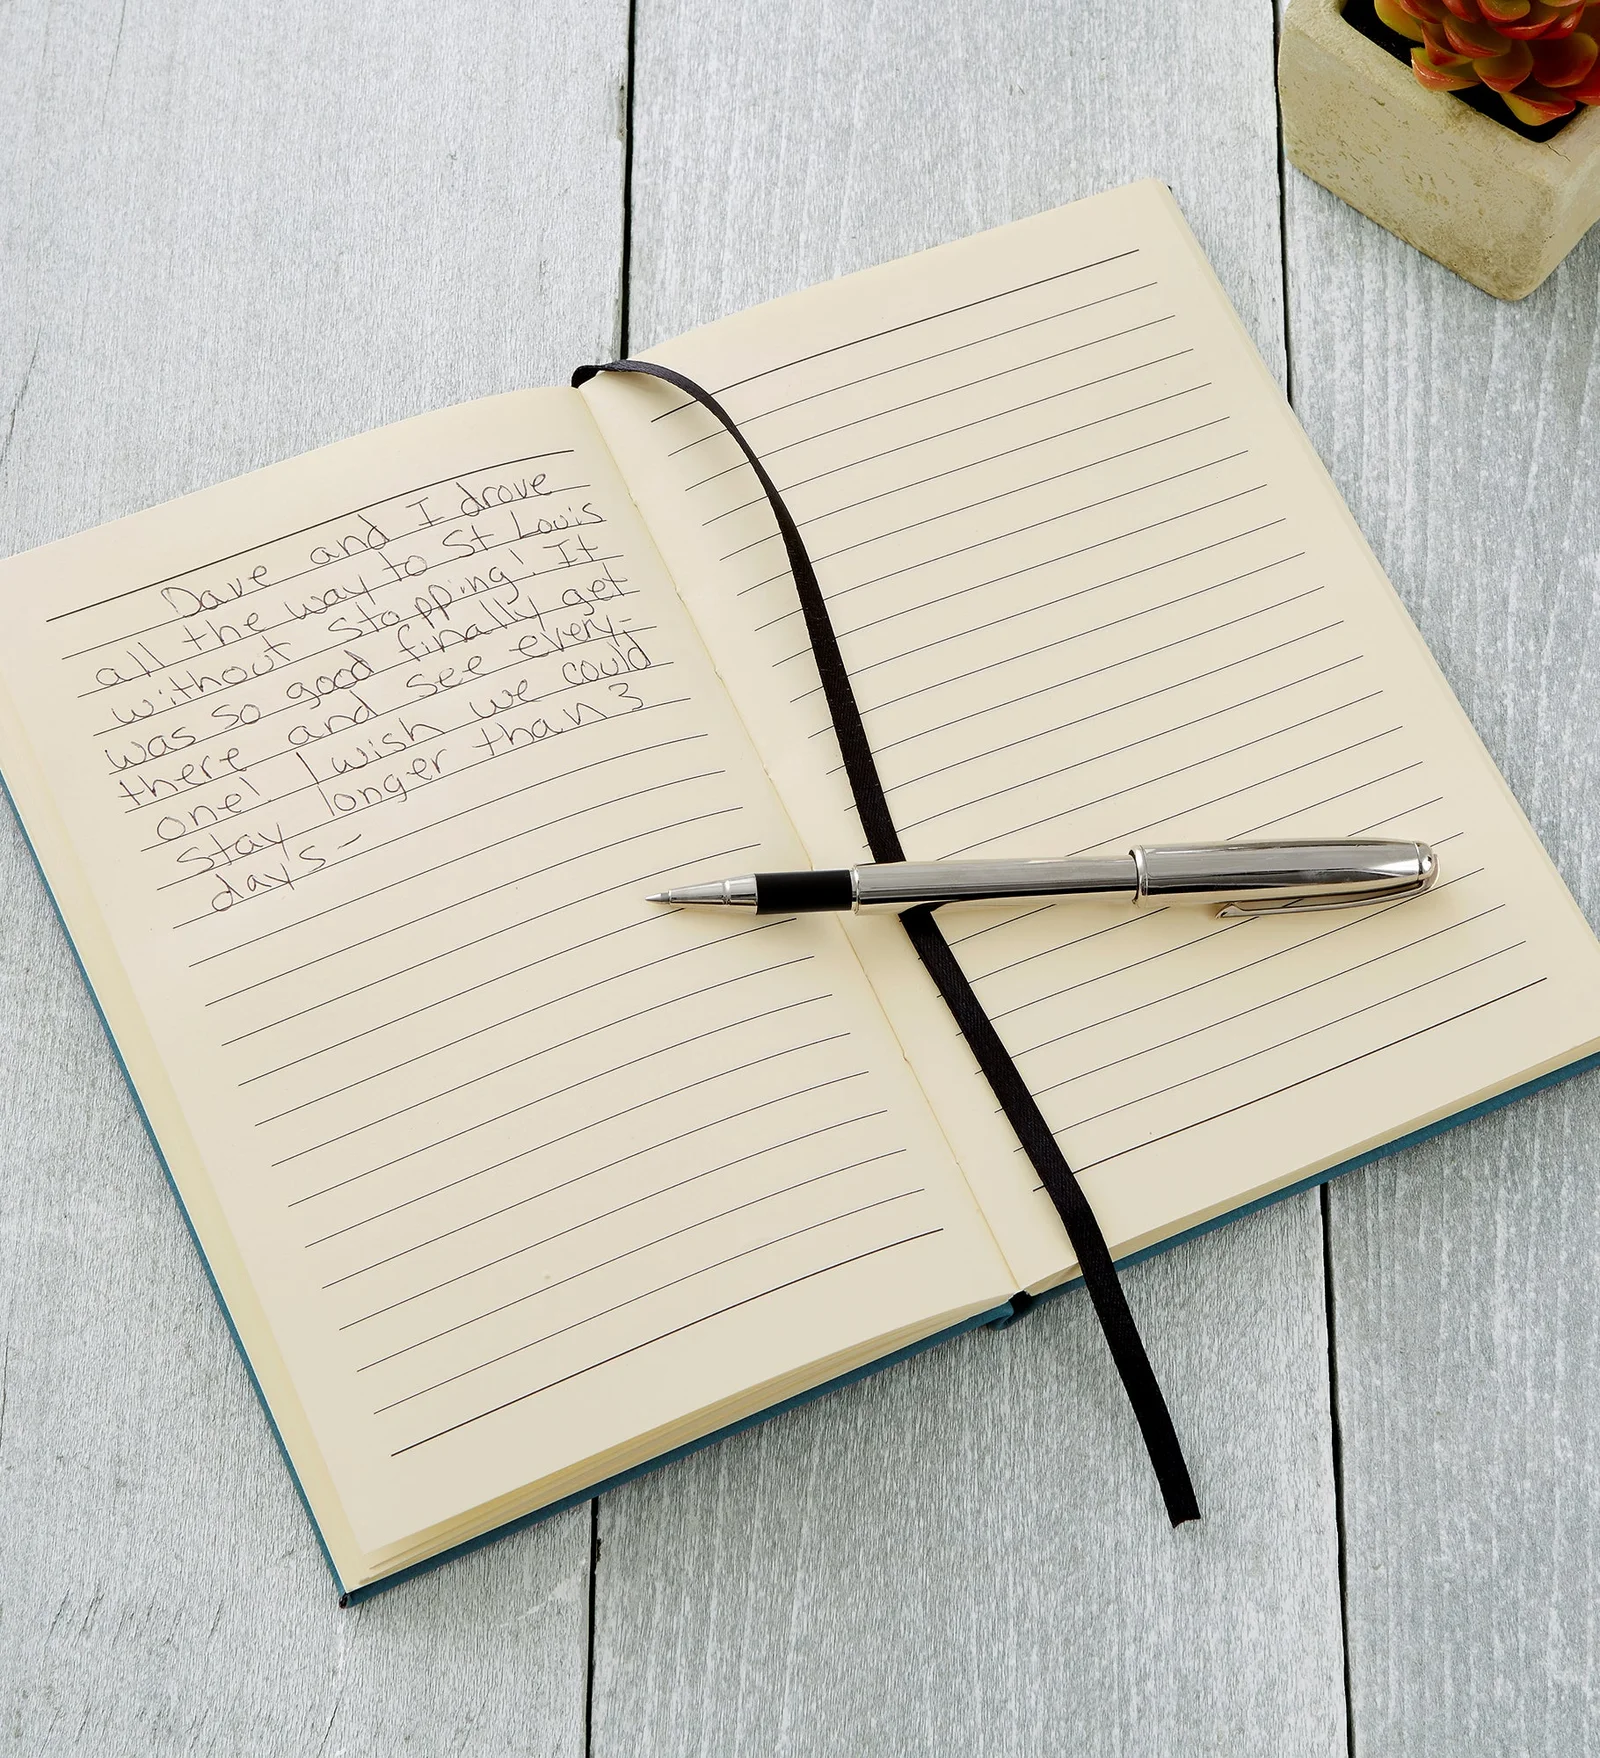 Dave and I drove
all the way to St Louis
without stopping! It
was so good finally get
there and see every-
one! I wish we could
stay longer than 3
day's -